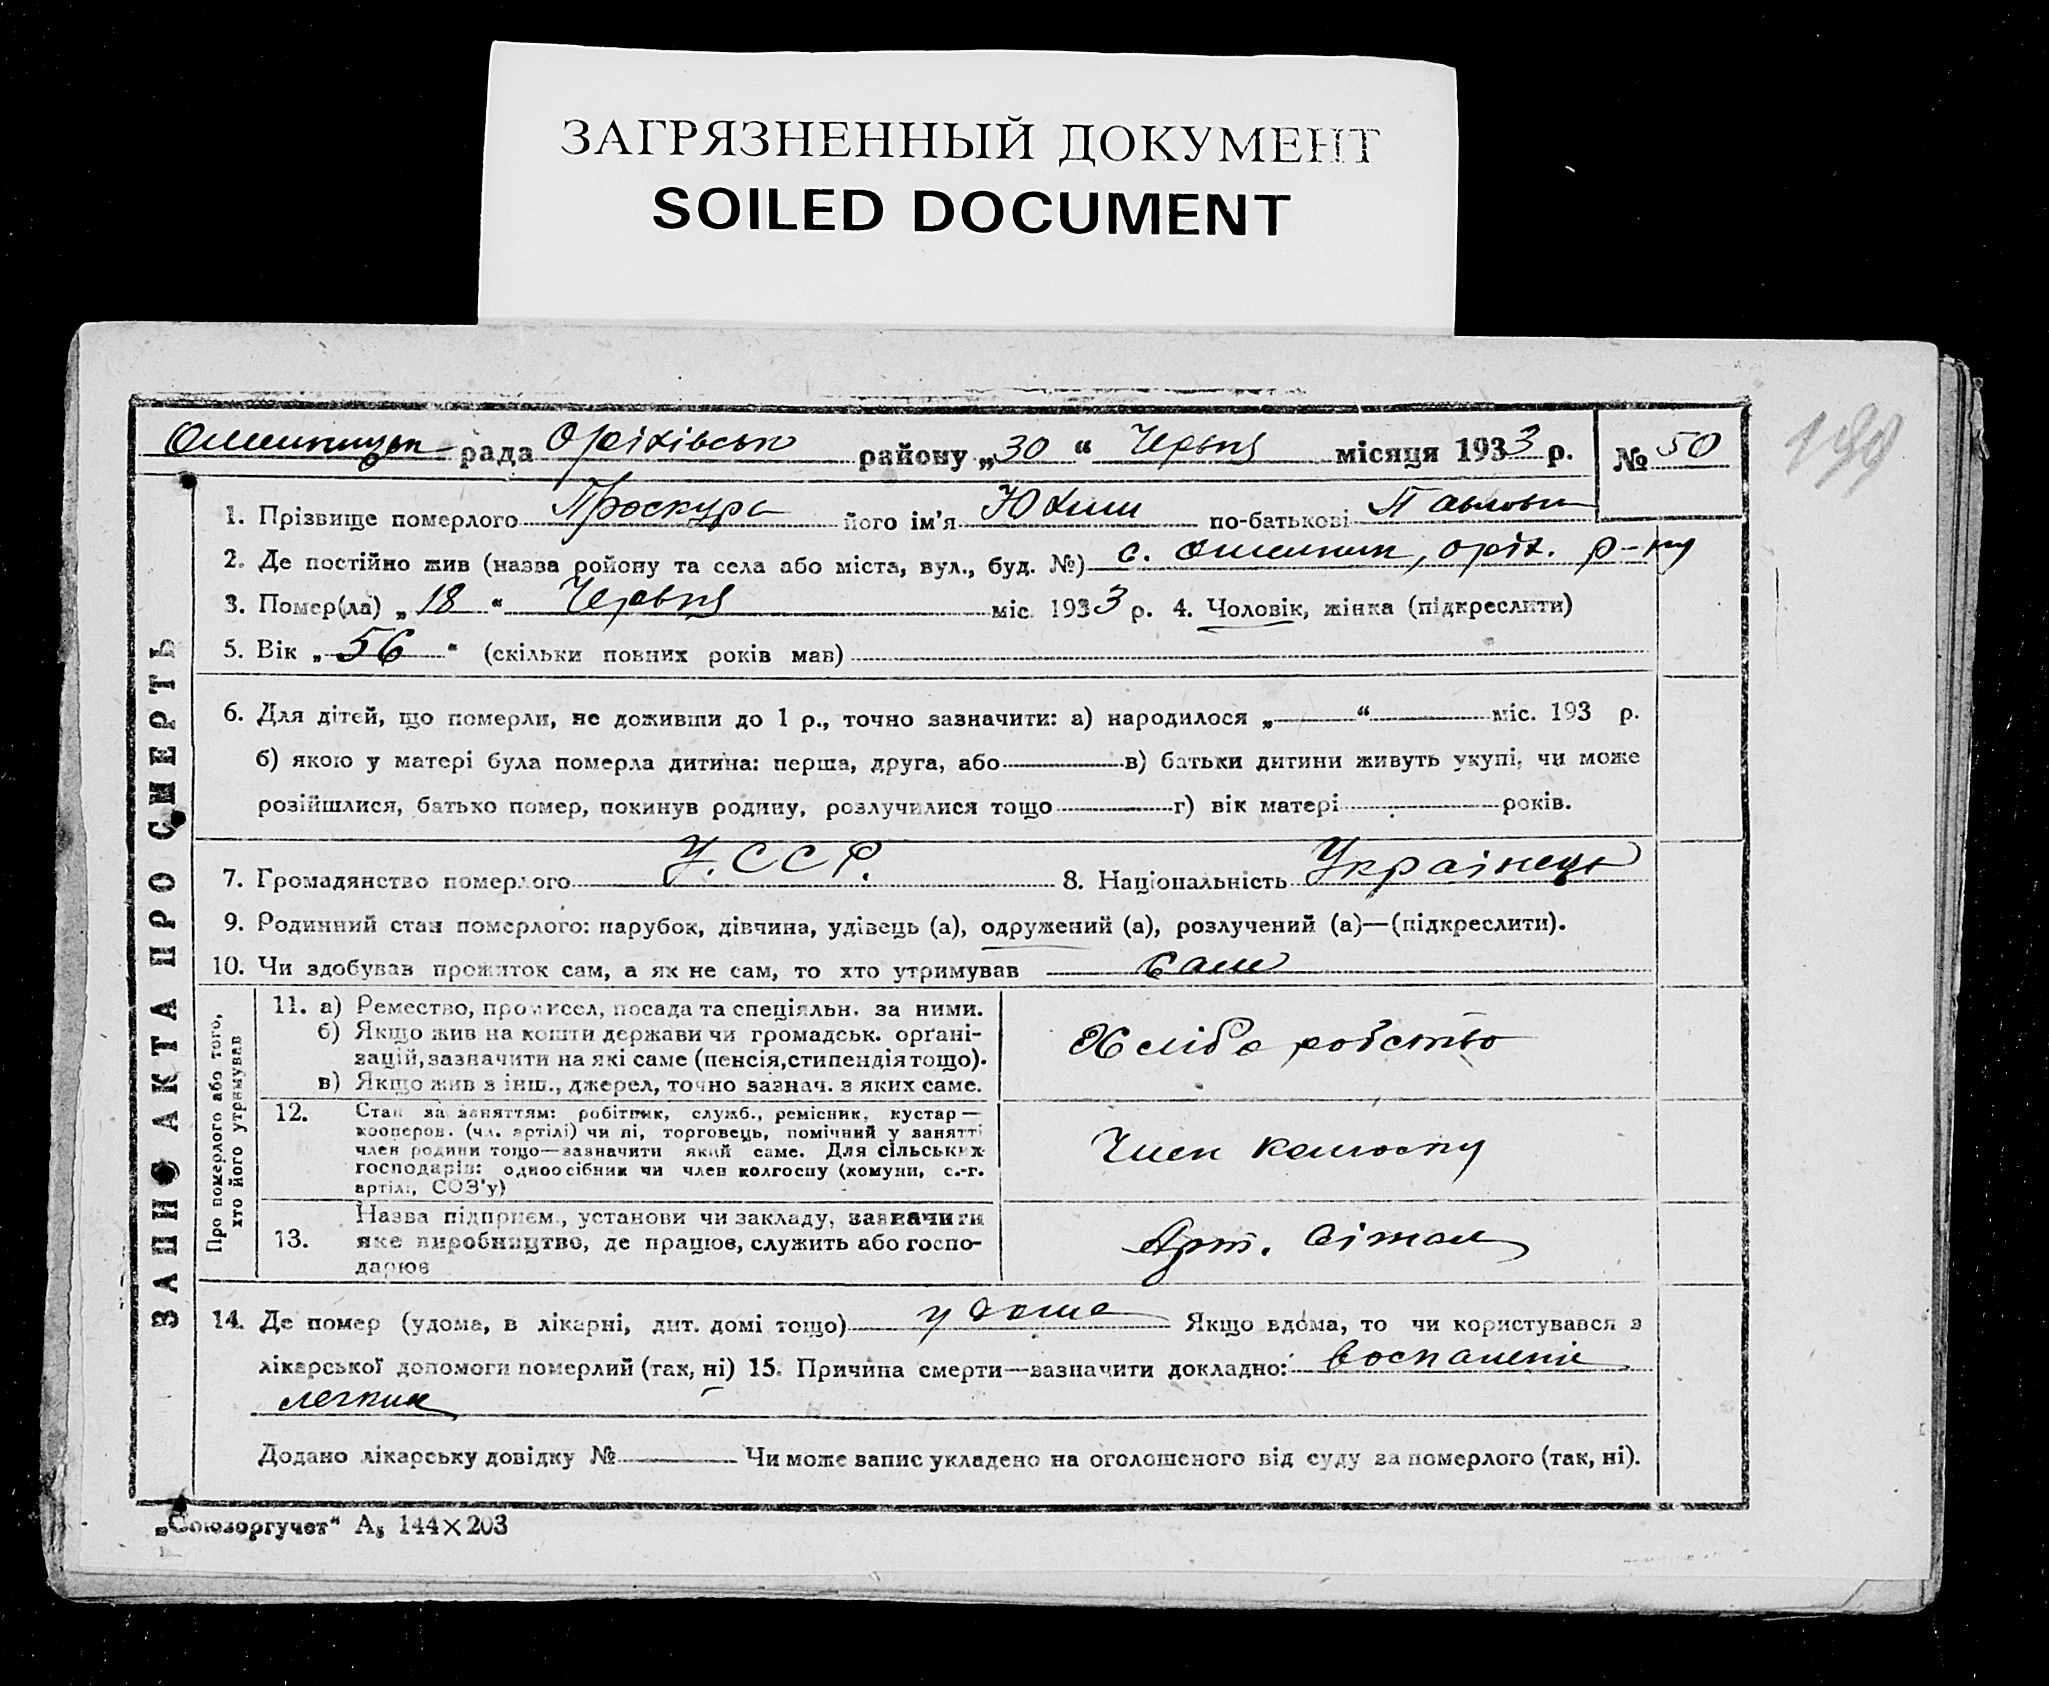 ЗАГРЯЗНЕННЫЙ ДОКУМЕНТ
SOILED DOCUMENT
рада Оріхівськ району „30“ Червня місяця 1933 р. № 50
199
ЗАПИС АКТА ПРО СМЕРТЬ
1. Прізвище померлого Проскура його ім'я Юхим по-батькові Павлови
2. Де постійно жив (назва ройону та села або міста, вул., буд. №) с. Омельник, оріх. р-ну
3. Помер(ла) „18“ Червня міс. 1933 р. 4. Чоловік, жінка (підкреслити)
5. Вік „56“ (скільки повних років мав)
6. Для дітей, що померли, не доживши до 1 р., точно зазначити: а) народилося „ “ міс. 193 р.
б) якою у матері була померла дитина: перша, друга, або в) батьки дитини живуть укупі, чи може
розійшлися, батько помер, покинув родину, розлучилися тощо г) вік матері років.
7. Громадянство померлого У.ССР. 8. Національність Українець
9. Родинний стан померлого: парубок, дівчина, удівець (а), одружений (а), розлучений (а)—(підкреслити).
10. Чи здобував прожиток сам, а як не сам, то хто утримував Сам
Про померлого або того, хто його утримував
11. а) Ремество, промисел, посада та спеціяльн. за ними.
б) Якщо жив на кошти держави чи громадськ. орґані-
зацій, зазначити на які саме (пенсія, стипендія тощо).
в) Якщо жив з інш., джерел, точно зазнач. з яких саме.
Хлібо робство
12. Стан за заняттям: робітник, служб., ремісник, кустар —
кооперов. (чл. артілі) чи ні, торговець, помічний у занятті
член родини тощо—зазначити який саме. Для сільських
господарів: одноосібник чи член колгоспу (комуни, с.-г.
артілі, СОЗ'у)
Член колгоспу
13. Назва підприєм., установи чи закладу, зазначити
яке виробництво, де працює, служить або госпо-
дарює
Арт.
14. Де помер (удома, в лікарні, дит. домі тощо) у дома Якщо вдома, то чи користувався з
лікарської допомоги померлий (так, ні) 15. Причина смерти—зазначити докладно: воспаленіе
легких
Додано лікарську довідку № Чи може запис укладено на оголошеного від суду за померлого (так, ні).
„Союзоргучет“ А₅ 144×203